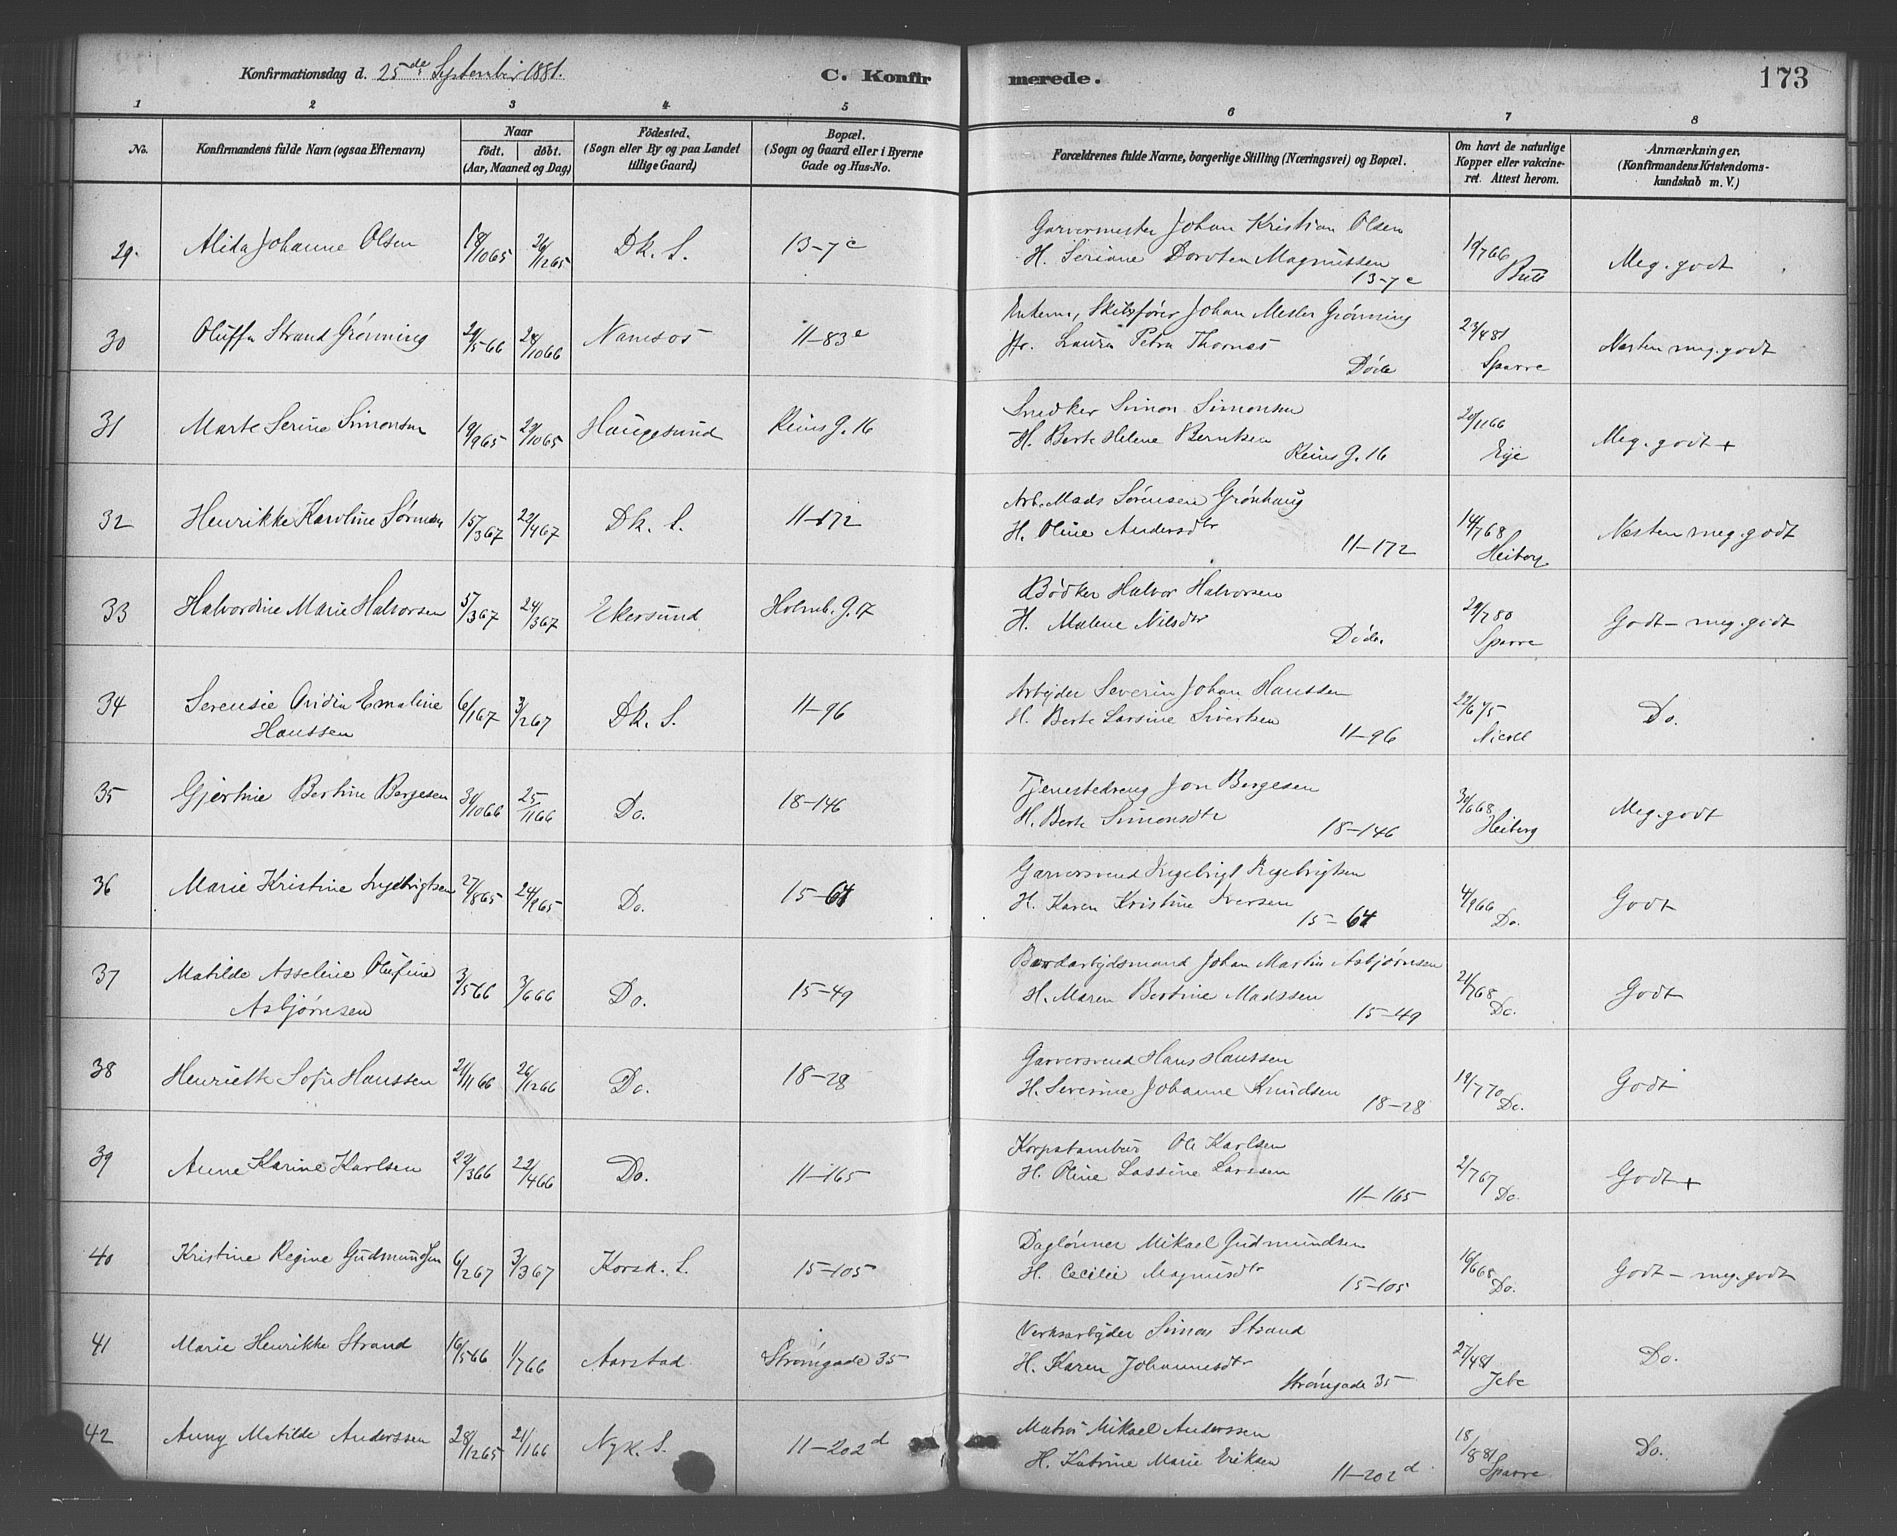 Konfirmationsdag d. 25de September 1881.
C. Konfirmerede.
173
1 2 3 4 5 6 7 8
No.
Konfirmandens fulde Navn (ogsaa Efternavn)
Naar
født. døbt.
(Aar, Maaned og Dag)
Fødested.
(Sogn eller By og paa Landet
tillige Gaard)
Bopæl.
(Sogn og Gaard eller i Byerne
Gade og Hus-No.
Forældrenes fulde Navne, borgerlige Stilling (Næringsvei) og Bopæl.
Om havt de naturlige
Kopper eller vakcine-
ret. Attest herom.
Anmærkninger,
(Konfirmandens Kristendoms-
kundskab m. V.)
29. Alida Johanne Olsen 18/1065 26/1265 Dk. S. 13-7c
Garvermester Johan Kristian Olsen
H. Seriane Dorotea Magnussen
13-7c
19/766
Meg. godt
30 Oluffa Strand Grønning 29/566 28/1066 Namsos 11-83e
Enkem., Skibsfører Johan Mesler Grønning
Laura Petra Thornæs
Døde
23/481
Sparre
Næsten meg. godt
31 Marte Serine Simonsen 19/965 29/1065 Haugesund Reins G. 16
Snedker Simon Simonsen
H. Berte Helene Berntsen
Reins G. 16
20/1166
Eije
Meg. godt +
32 Henrikke Karoline Sørensen 15/367 22/467 Dk. S. 11-172
Arb. Mads Sørensen Grønhaug
H. Oline Andersdtr
11-172
14/768
Heiberg
Næsten meg. godt
33 Halvordine Marie Halvorsen 5/367 24/367 Ekersund Holmb. G. 17
Bødker Halvor Halvorsen
H. Malene Nilsdtr
Døde.
29/780
Sparre
Godt - meg. godt
34 Serensie Ovidia Emaline
Hanssen
6/167 3/267 Dk. S. 11-96
Arbejder Severin Johan Hanssen
H. Berte Larsine Sivertsen
11-96
22/675
Nicoll
Do.
35 Gjertine Bertine Bergesen 30/1066 25/1166 Do. 18-146
Tjenestedreng Jon Bergesen
H. Berte Simonsdtr
18-146
30/668
Heiberg
Meg. godt
36 Marie Kristine Ingebrigtsen 27/865 24/965 Do. 15-64
Garversvend Ingebrigt Ingebrigtsen
H. Karen Kristine Iversen
15-64
4/966
Do.
Godt
37 Matilde Asseline Olufine
Asbjørnsen
3/566 3/666 Do. 15-49
Bordarbejdsmand Johan Martin Asbjørnsen
H. Maren Bertine Madssen
15-49
21/768
Do.
Godt
38 Henriette Sofie Hanssen 21/1166 26/1266 Do. 18-28
Garversvend Hans Hanssen
H. Severine Johanne Knudsen
18-28
19/770
Do.
Godt
39 Anne Karine Karlsen 22/366 22/466 Do. 11-165
Korpstambur Ole Karlsen
H. Oline Lassine Larssen
11-165
2/767
Do.
Godt +
40 Kristine Regine Gudmundsen 6/267 3/367 Korsk. S. 15-105
Daglønner Mikael Gudmundsen
H. Cecilie Magnusdtr
15-105
16/668
Do.
Godt - meg. godt
41 Marie Henrikke Strand 16/566 1/766 Aarstad Strømgade 35
Verksarbejder Simon Strand
H. Karen Johannesdtr
Strømgade 35
27/481
Jebe
Do.
42 Anny Matilde Anderssen 28/1265 21/166 Nyk. S. 11-202d
Matros Mikael Anderssen
H. Katrine Marie Eriksen
11-202d
18/881
Sparre
Do.